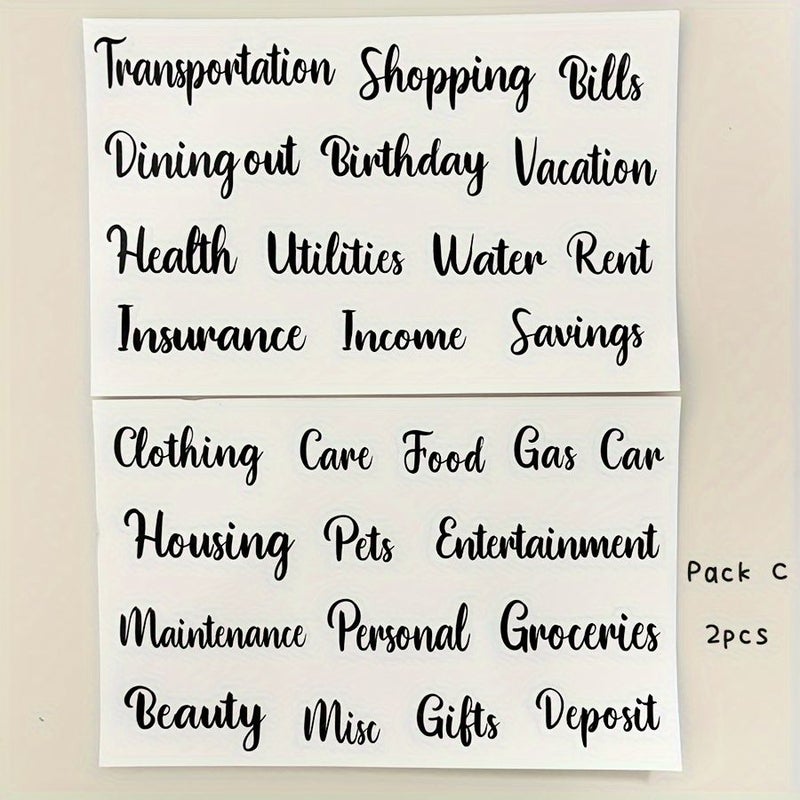 Transportation Shopping Bills
Dining out Birthday Vacation
Health Utilities Water Rent
Insurance Income Savings
Clothing Care Food Gas Car
Housing Pets Entertainment
Maintenance Personal Groceries
Beauty Misc Gifts Deposit
Pack C
2pcs